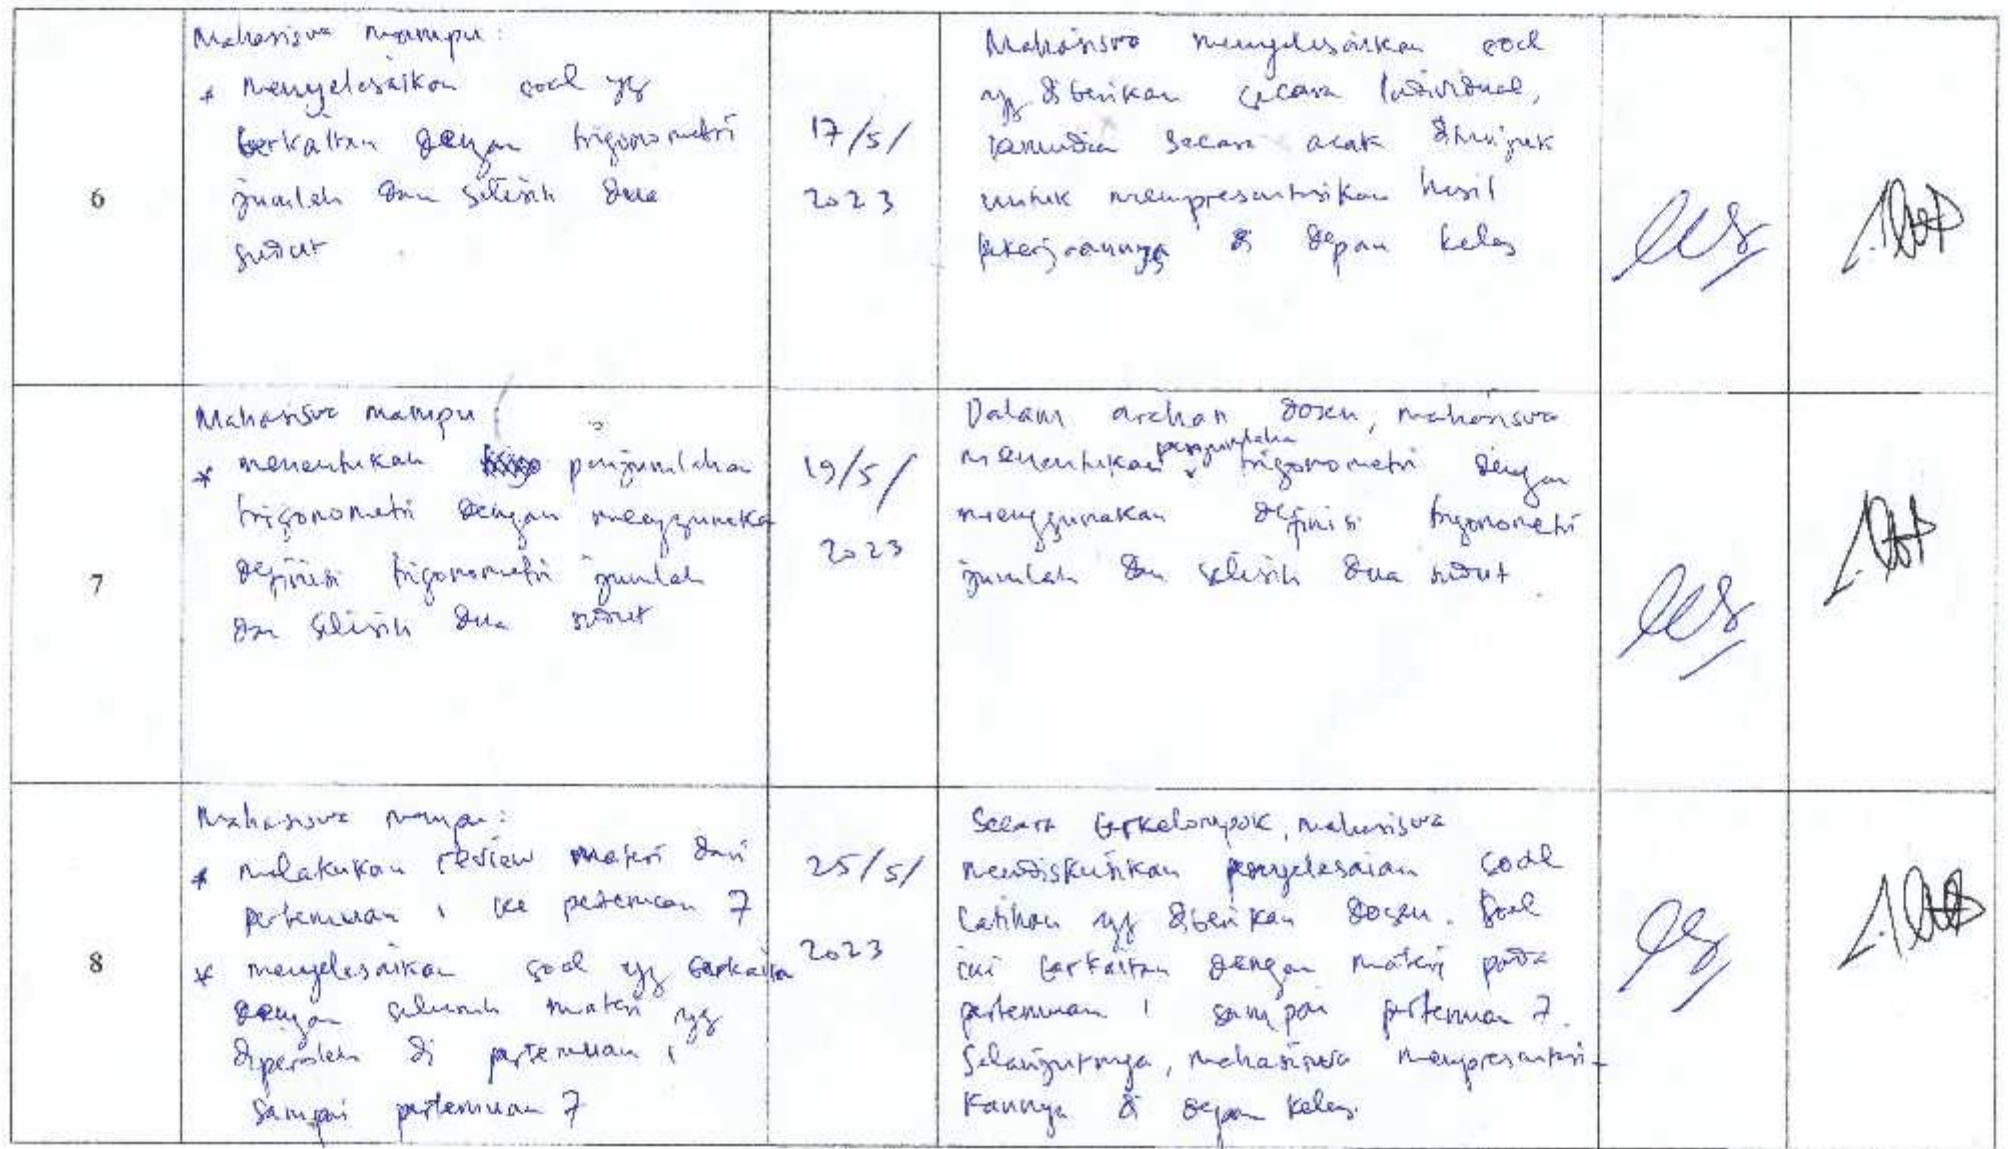 6
Mahasiswa mampu:
* menyelesaikan soal yg
berkaitan dengan trigonometri
jumlah dan selisih dua
sudut
17/5/
2023
Mahasiswa menyelesaikan soal
yg diberikan secara Individual,
kemudian secara acak ditunjuk
untuk mempresentasikan hasil
pekerjaannya di depan kelas
7
Mahasiswa mampu:
* menentukan penjumlahan
trigonometri dengan menggunaka
definisi trigonometri jumlah
dan selisih dua sudut
19/5/
2023
Dalam arahan dosen, mahasiswa
menentukan penjumlahan trigonometri dengan
menggunakan definisi trigonometri
jumlah dan selisih dua sudut.
8
Mahasiswa mampu:
* melakukan review materi dari
pertemuan 1 ke pertemuan 7
* menyelesaikan soal yg berkaita
dengan seluruh materi yg
diperoleh di pertemuan 1
sampai pertemuan 7
25/5/
2023
Secara berkelompok, mahasiswa
mendiskusikan penyelesaian soal
latihan yg diberikan dosen. Soal
ini berkaitan dengan materi pada
pertemuan 1 sampai pertemuan 7.
Selanjutnya, mahasiswa mempresentasi-
kannya di depan kelas.